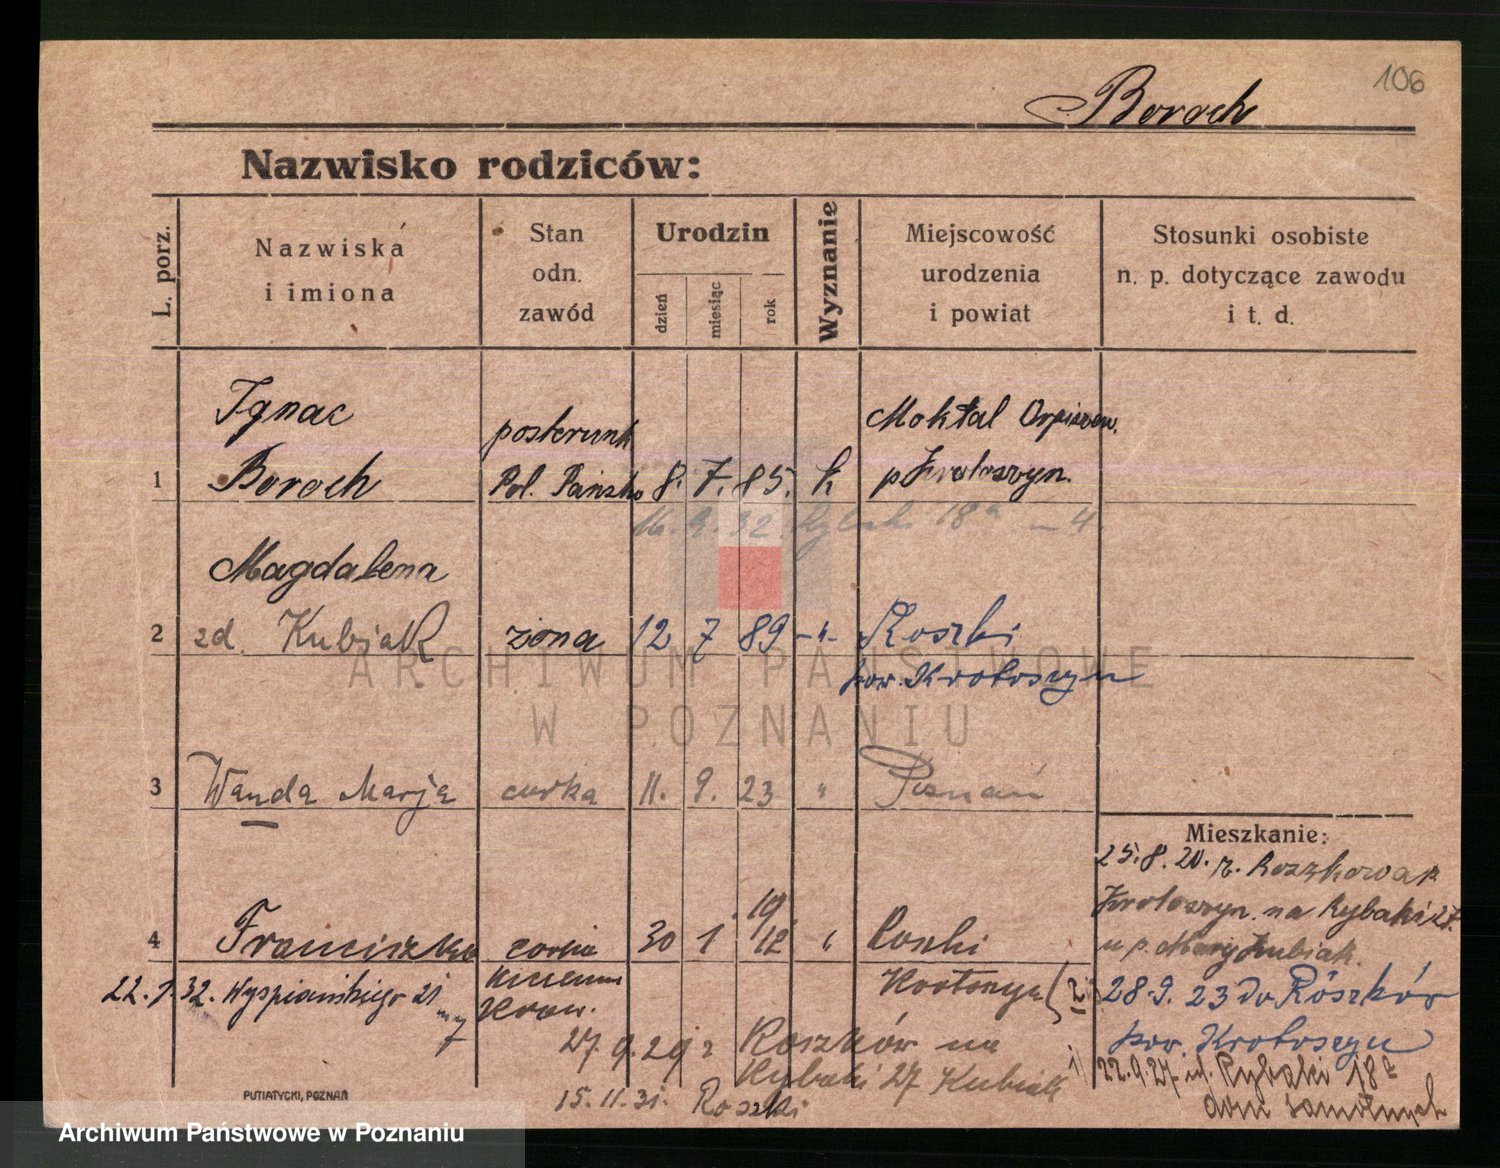 106
Boroch
Nazwisko rodziców:
L. porz.
Nazwiska
i imiona
Stan
odn.
zawód
Urodzin
dzień
miesiąc
rok
Wyznanie
Miejscowość
urodzenia
i powiat
Stosunki osobiste
n. p. dotyczące zawodu
i t. d.
Ignac
posterunk
Mokłal Orpiszew.
1 Boroch Pol. Państw 8. 7. 85. k p Krotoszyn.
16. 9. 32. Rybaki 18a – 4
Magdalena
2 zd. Kubiak żona 12 7 89 -"- Roszki
pow. Krotoszyn
3 Wanda Marja curka 11. 9. 23 " Poznań
Mieszkanie:
25.8.20. z. Roszkowa p.
Krotoszyn na Rybaki 27.
u p. Mary Kubiak.
19
4 Franciszka corka 30 1 12 " Roszki
22.1.32. Wyspiańskiego 21
m 7
28.9.23 do Roszków
pow. Krotoszyn
27.9.29 z Roszków na
Rybaki 27 Kubiak
22.9.27. ul. Rybaki 18a
dom samotnych
15.11.31. Roszki
PUTIATYCKI, POZNAŃ
ARCHIWUM PAŃSTWOWE
W POZNANIU
Archiwum Państwowe w Poznaniu